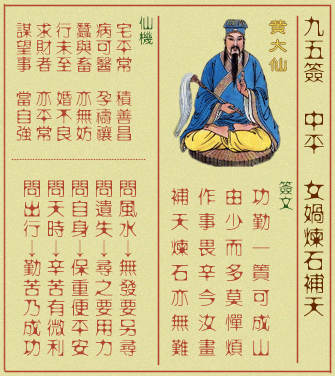 九五簽 中平 女媧煉石補天
黃大仙
簽文
功勤一簣可成山
由少而多莫憚煩
作事畏辛今汝畫
補天煉石亦無難
仙機
宅平常 積善昌
病可醫 孕禱禳
蠶與畜 亦無妨
行未至 婚不良
求財者 亦平常
謀望事 當自強
問風水→無發要另尋
問遺失→尋之要用力
問自身→保重便平安
問天時→辛苦有微利
問出行→勤苦乃成功